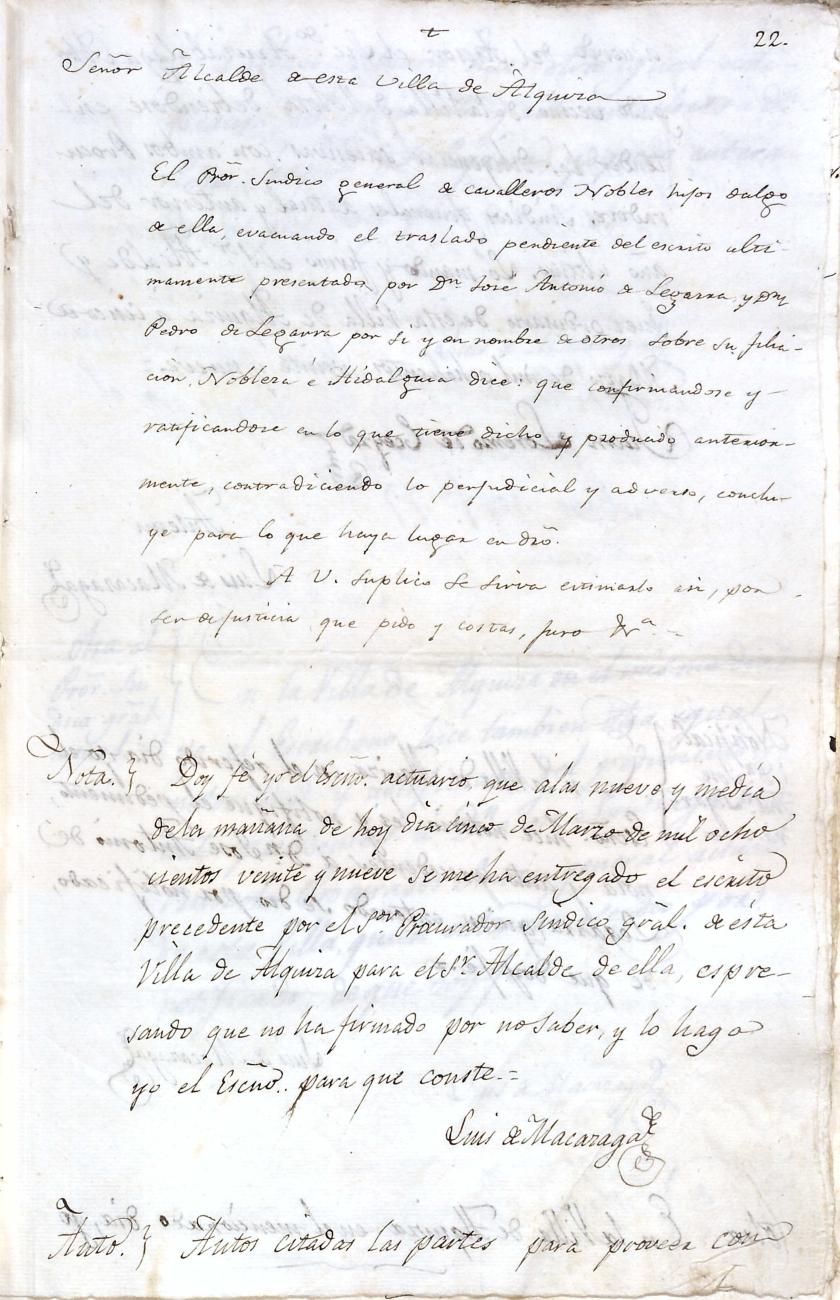 22.
Señr Alcalde de esta Villa de Alquiza
El Prõr. Sindico general de cavalleros Nobles hijos dalgo
de ella, evacuando el traslado pendiente del escrito ulti-
mamente presentado por Dn. José Antonio de Legarra, y Dn.
Pedro de Legarra por si y en nombre de otros sobre su filia-
cion, Nobleza é Hidalguia dice: que confirmandose y
ratificandose en lo que tiene dicho y producido anterior-
mente, contradiciendo lo perjudicial y adverso, conclu-
ye para lo que haya lugar en dró.
A V. suplico se sirva estimarlo asi, por
ser de justicia, que pido y costas, juro &a.
Nota.} Doy fé yo el Escño. actuario que álas nueve y media
dela mañana de hoy dia cinco de Marzo de mil ocho
cientos veinte y nueve se me ha entregado el escrito
precedente por el Sor. Procurador Sindico grãl. de ésta
Villa de Alquiza para el Sr. Alcalde de ella, espre-
sando que no ha firmado por no saber, y lo hago
yo el Escño.. para que conste.=
Luis de Macazaga
Auto.} Autos citadas las partes para proveer con